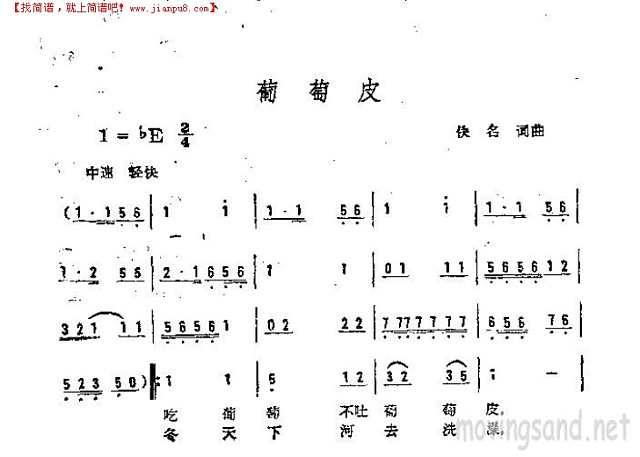 【找简谱，就上简谱吧! www.jianpu8.com】
葡萄皮
1=♭E 2/4
佚名 词曲
中速 轻快
(1·1 56 | 1 i | 1·1 56 | 1 i | 1·1 56 |
1·2 55 | 2·1 656 | 1 1 | 01 11 | 5656 12 |
321 11 | 5656 1 | 02 22 | 777 7777 | 656 76 |
523 50) 1 1 | 1 5 | 12 32 | 35 1 |
吃葡萄 不吐葡萄皮,
冬天下河去洗澡,
movingsand.net